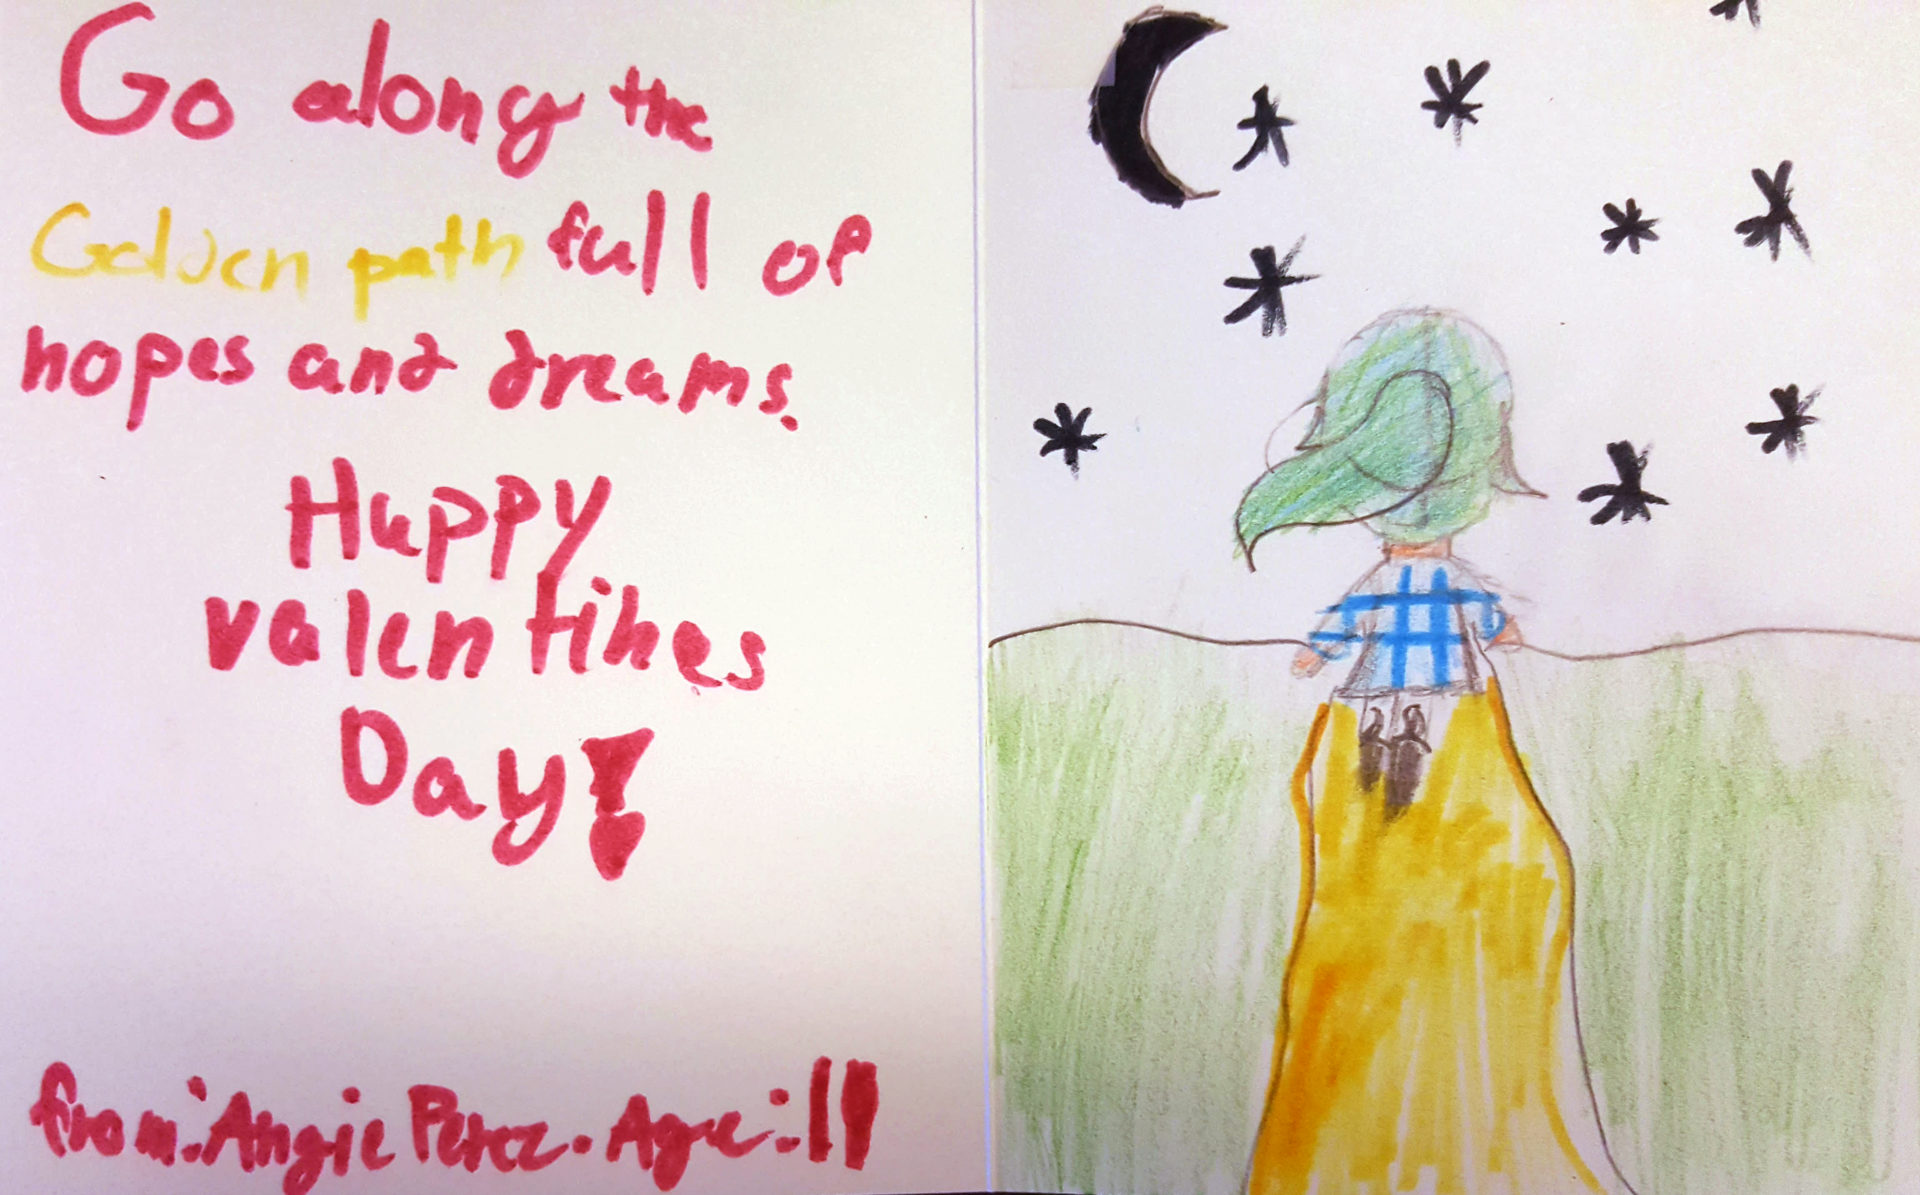 Go along the
Golden path full of
hopes and dreams.
Happy
valentines
Day!
from: Angie Perez. Age: 11